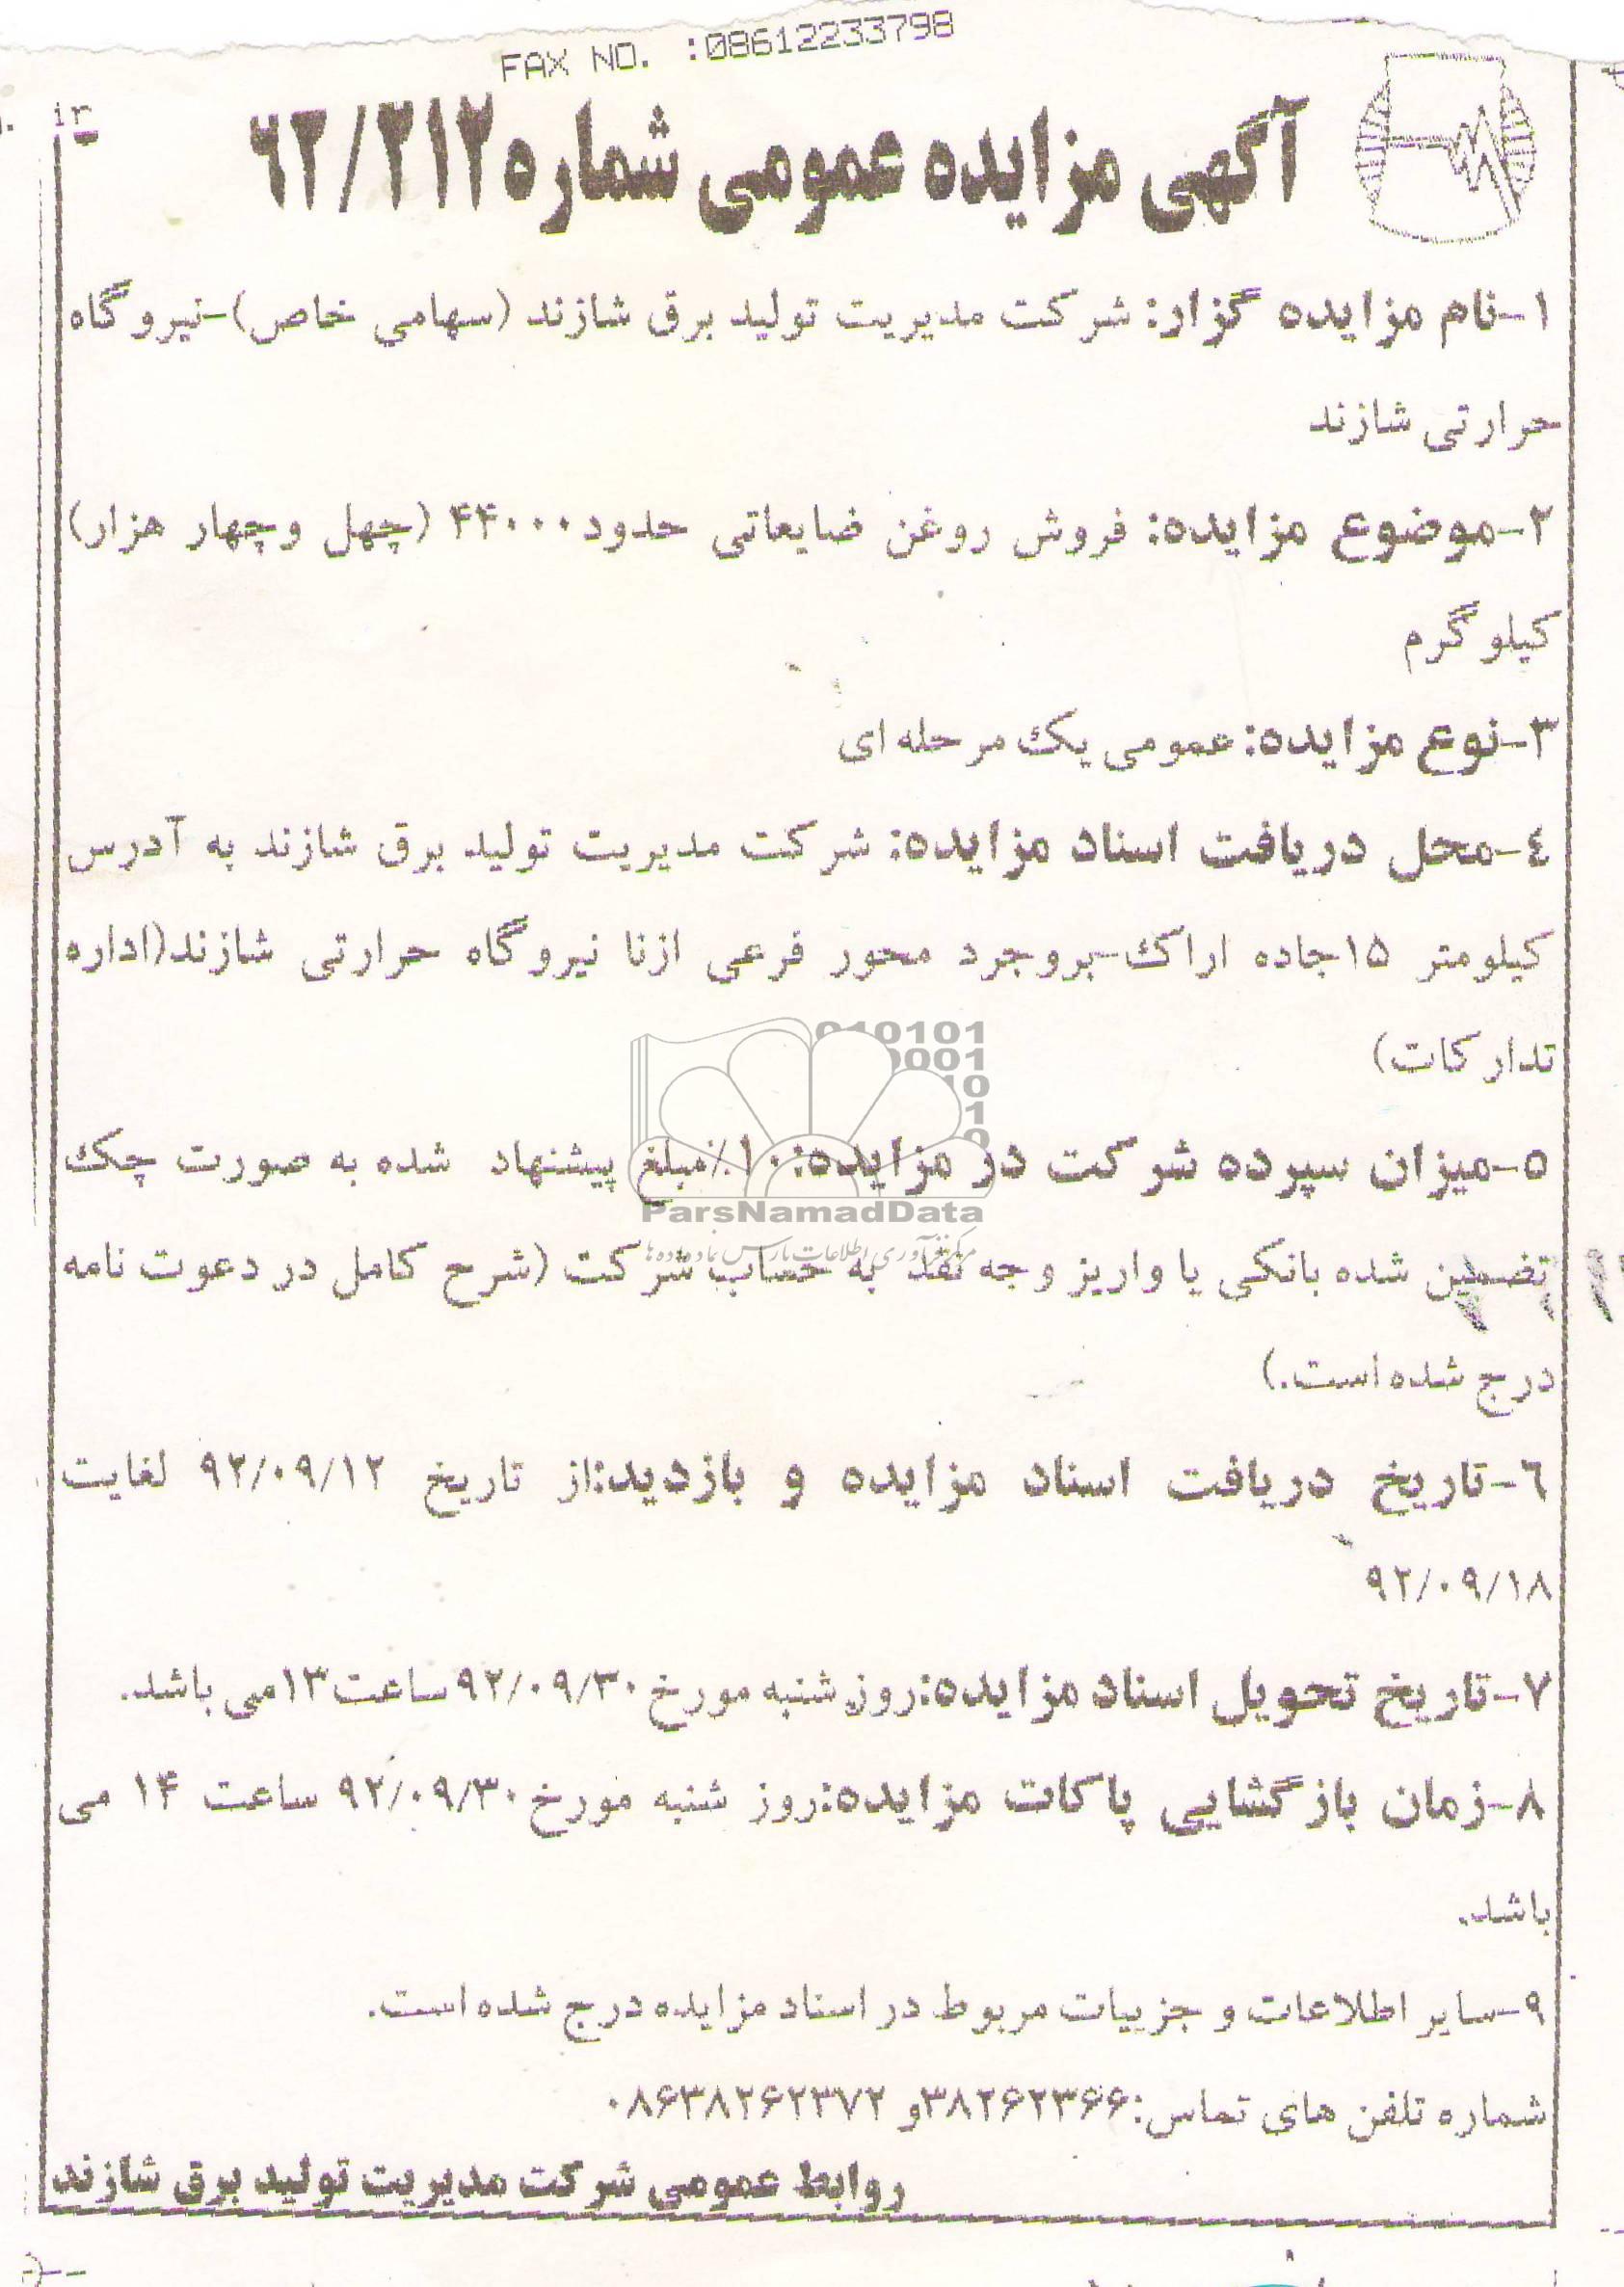 FAX NO. :08612233798
ir
آگهی مزایده عمومی شماره ۶۲/۲۱۲
۱-نام مزایده گزار: شرکت مدیریت تولید برق شازند (سهامی خاص)-نیروگاه
حرارتی شازند
۲-موضوع مزایده: فروش روغن ضایعاتی حدود ۴۴۰۰۰ (چهل وچهار هزار)
کیلوگرم
۳-نوع مزایده: عمومی یک مرحله ای
٤-محل دریافت اسناد مزایده: شرکت مدیریت تولید برق شازند به آدرس
کیلومتر ۱۵جاده اراک-بروجرد محور فرعی ازنا نیروگاه حرارتی شازند(اداره
تدارکات)
010101
ParsNamadData
مرکز فرآوری اطلاعات پارس نماد داده ها
٥-میزان سپرده شرکت در مزایده: ۱۰٪مبلغ پیشنهاد شده به صورت چک
تضمین شده بانکی یا واریز وجه نقد به حساب شرکت (شرح کامل در دعوت نامه
درج شده است.)
٦-تاریخ دریافت اسناد مزایده و بازدید:از تاریخ ۹۲/۰۹/۱۲ لغایت
۹۲/۰۹/۱۸
۷-تاریخ تحویل اسناد مزایده:روز شنبه مورخ ۹۲/۰۹/۳۰ساعت۱۳می باشد.
۸-زمان بازگشایی پاکات مزایده:روز شنبه مورخ ۹۲/۰۹/۳۰ ساعت ۱۴ می
باشد.
۹-سایر اطلاعات و جزییات مربوط در اسناد مزایده درج شده است.
شماره تلفن های تماس:۳۸۲۶۲۳۶۶و ۰۸۶۳۸۲۶۲۳۷۲
روابط عمومی شرکت مدیریت تولید برق شازند